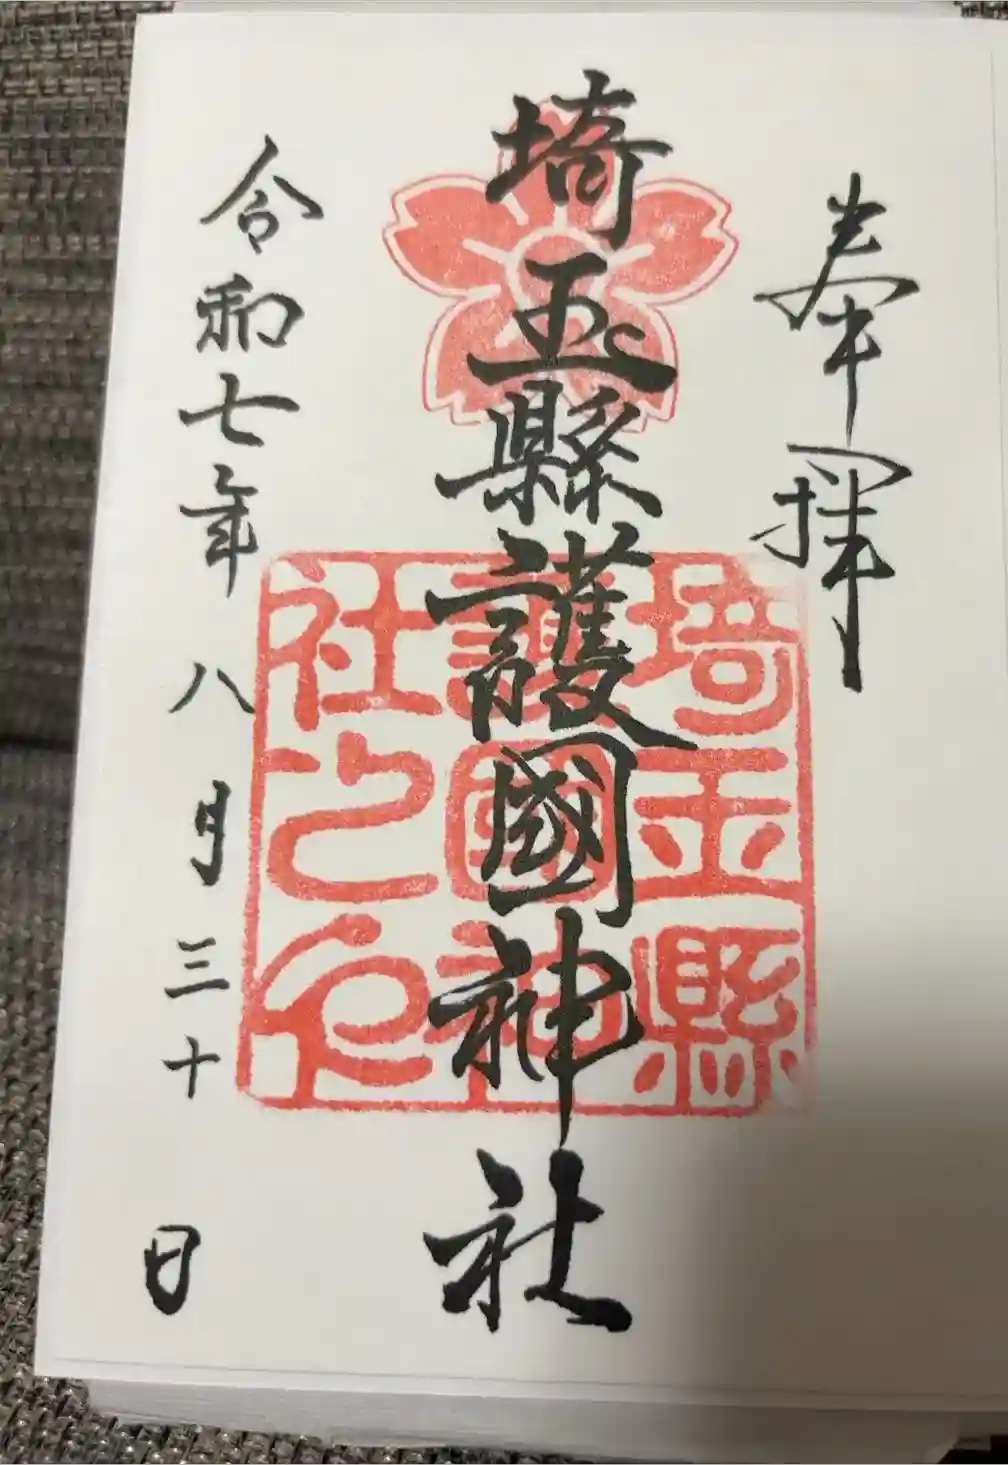 奉拝
埼玉縣護國神社
令和七年八月三十日
埼玉縣
護國神
社之印